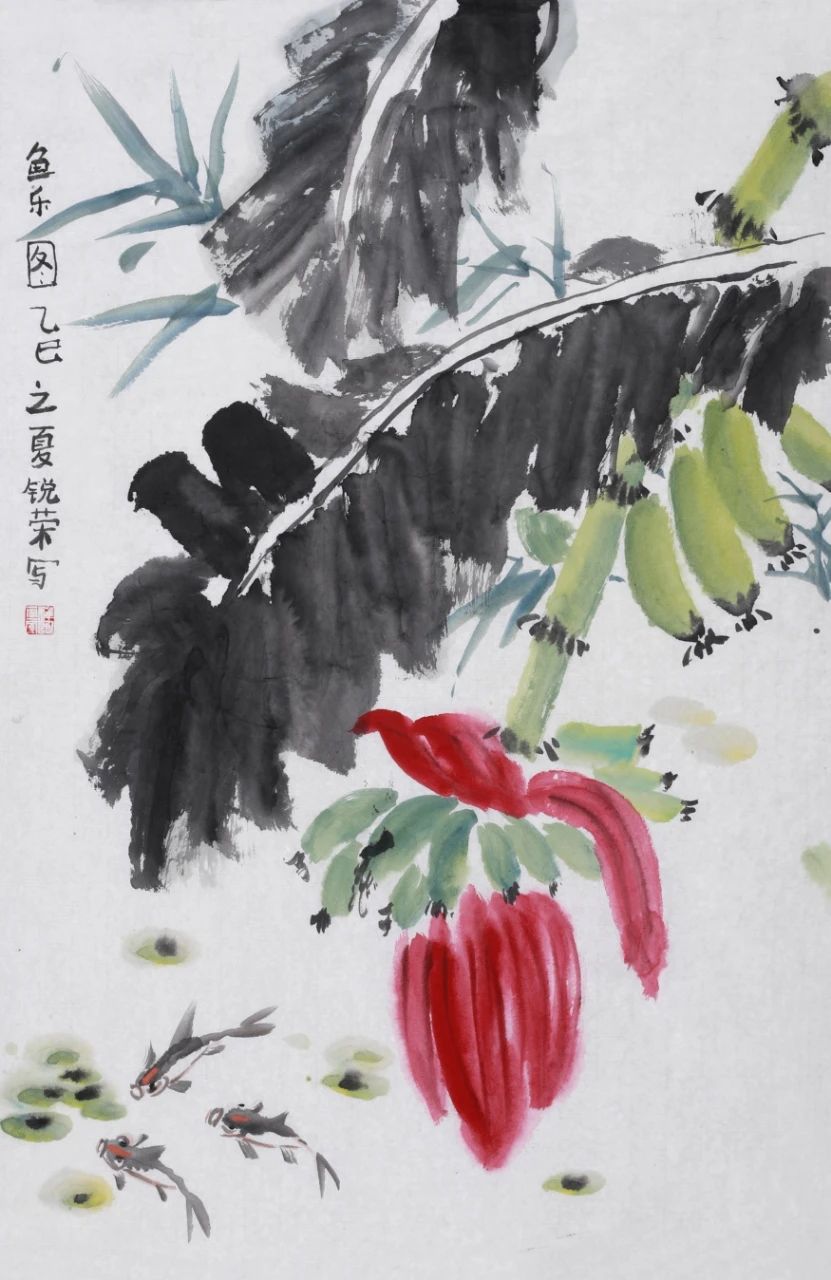 鱼乐图乙巳之夏锐荣写